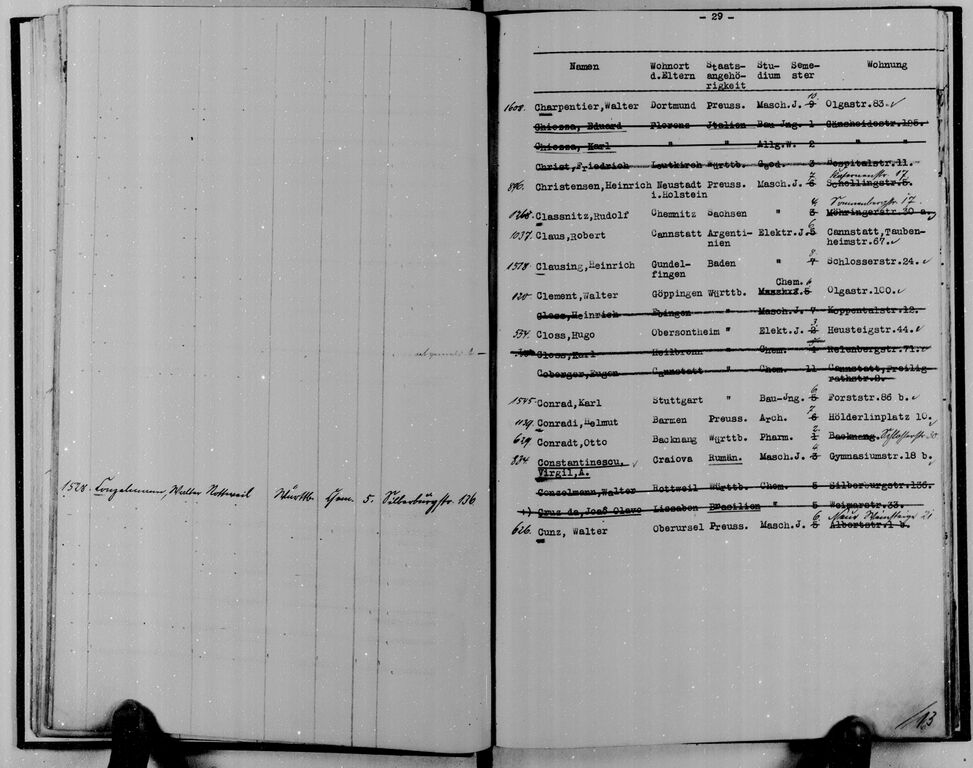 1528. Conzelmann, Walter Rottweil Württb. Chem. 5. Silberburgstr. 136
- 29 -
Namen Wohnort d.Eltern Staats-angehö-rigkeit Stu-dium Seme-ster Wohnung
10.
1608. Charpentier,Walter Dortmund Preuss. Masch.J. 9 Olgastr.83.
Chiossa, Eduard Florenz Italien Bau-Jng. 1 Gänsheidestr.125.
Chiossa, Karl " " Allg.W. 2 " "
Christ,Friedrich Leutkirch Württb. Geod. 3 Hospitalstr.11.
7. Kasernenstr. 17.
Christensen,Heinrich Neustadt Preuss. Masch.J. 6 Schellingstr.5.
i.Holstein
4. Sonnenbergstr. 17.
1268. Classnitz,Rudolf Chemnitz Sachsen " 3 Möhringerstr.30 a.
6.
1037. Claus,Robert Cannstatt Argenti- Elektr.J. 5 Cannstatt,Tauben-
nien heimstr.67.
8.
1578. Clausing,Heinrich Gundel- Baden " 7 Schlosserstr.24.
fingen
Chem. 6
120. Clement,Walter Göppingen Württb. 5 Olgastr.100.
Closs,Heinrich Ebingen " Masch.J. 7 Koppentalstr.12.
3.
534. Closs,Hugo Obersontheim " Elekt.J. 2 Heusteigstr.44.
Closs,Karl Heilbronn " Chem. 4 Relenbergstr.71.
Coberger,Eugen Cannstatt " Chem. 11 Cannstatt,Freilig-
rathstr.8.
6.
1545. Conrad,Karl Stuttgart " Bau-Jng. 5 Forststr.86 b.
7.
1139. Conradi,Helmut Barmen Preuss. Arch. 6 Hölderlinplatz 10.
2.
629. Conradt,Otto Backnang Württb. Pharm. 1 Backnang. Schlosserstr. 30
4.
834. Constantinescu, Craiova Rumän. Masch.J. 3 Gymnasiumstr.18 b.
Virgil,A.
Conzelmann,Walter Rottweil Württb. Chem. 5 Silberburgstr.136.
+) Cruz da,Joaš Olavo Lissabon Brasilien " 5 Weimarstr.33.
6. Neue Weinsteige 21
626. Cunz, Walter Oberursel Preuss. Masch.J. 5 Albertstr.1 b.
/13